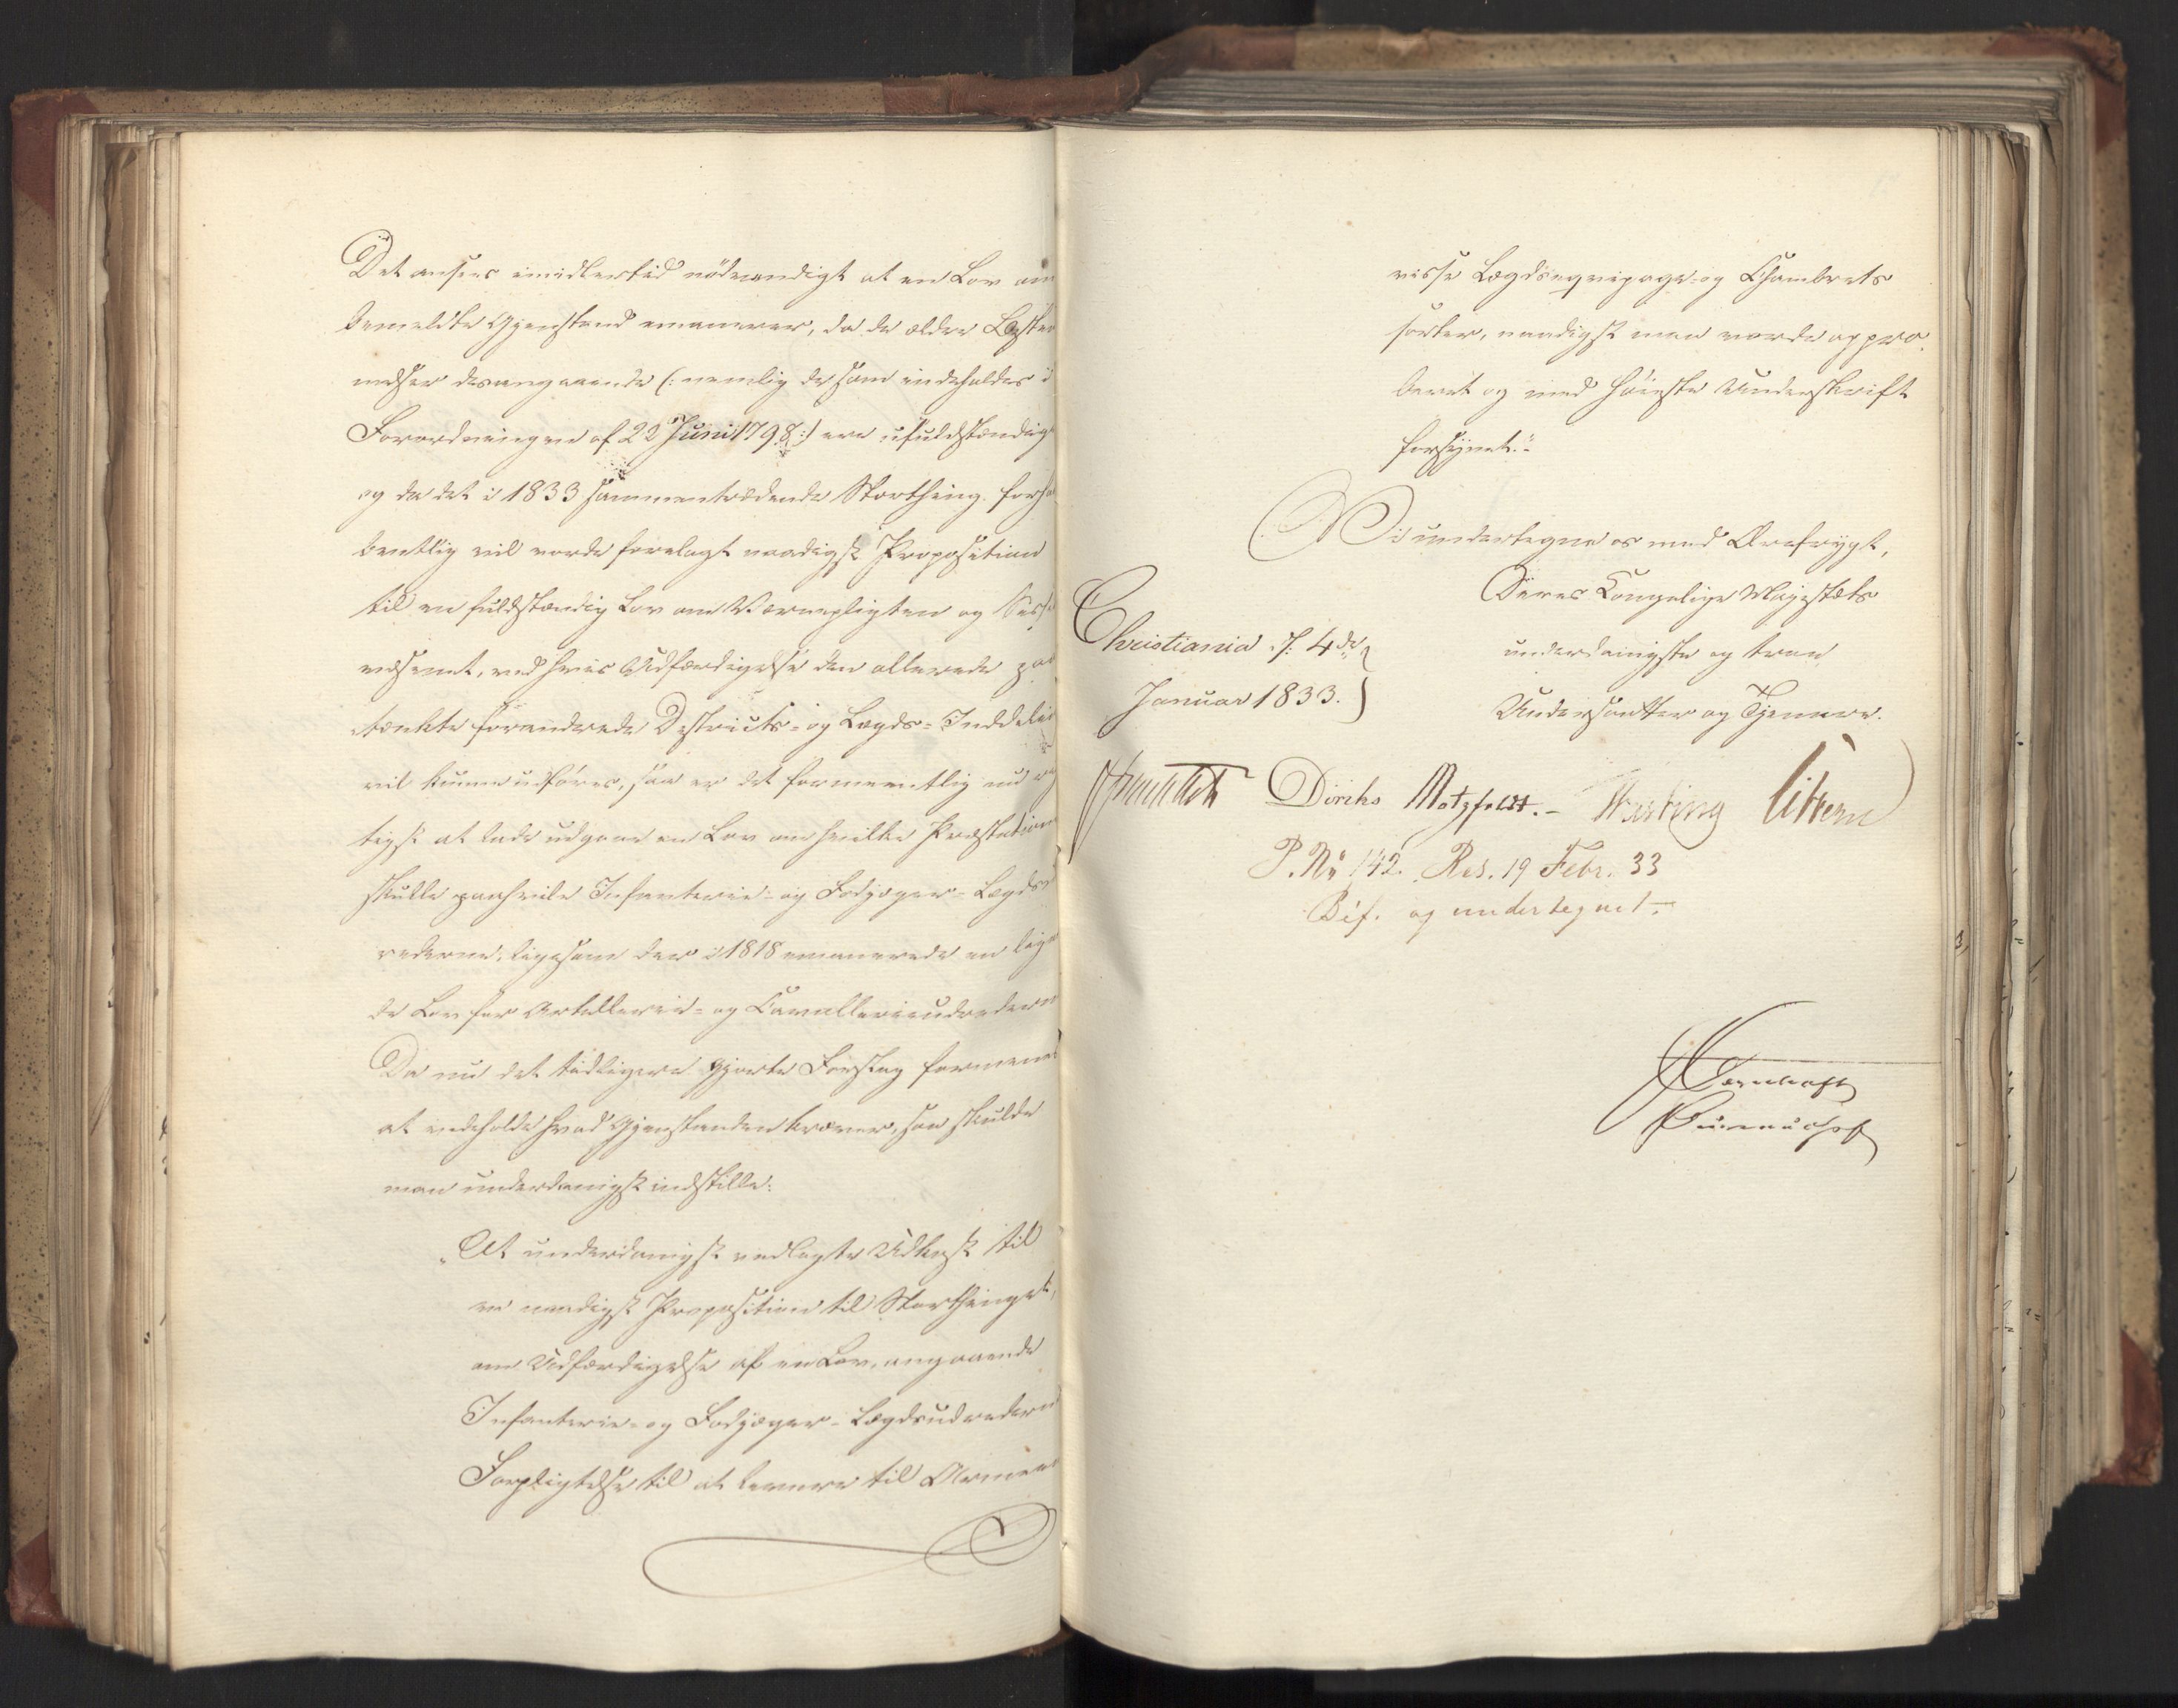 Det ansees imidlertid nödvendigt at en Lov om
bemeldte Gjenstand emanerer, da de ældre Bestem
melser desangaaende (: nemlig de som indeholdes i
Forordningen af 22 Juni 1798 :) ere ufuldstændige
og da det i 1833 sammentrædende Storthing forhaa
bentlig vil vorde forelagt naadigst Proposition
til en fuldstændig Lov om Værnepligten og
væsenet, ved hvis Udfærdigelse den allerede paa
tænkte forandrede Districts- og Lægds-Inddeling
vil kunne udföres, saa er det formeentlig nu
tigst at lade udgaae en Lov om hvilke Præstationer
skulle paahvile Infanterie- og Fodjæger-Lægdsud
rederne, ligesom der i 1818 emanerede en lignen
de Lov for Artillerie- og Cavallerieudrederne
Da nu det tidligere gjorte Forslag formenes
at indeholde hvad Gjenstanden kræver, saa skulde
man underdanigst indstille:
„At underdanigst vedlagte Udkast til
en naadigst Proposition til Storthinget,
om Udfærdigelse af en Lov, angaaende
Infanterie- og Fodjæger-Lægdsudredernes
Forpligtelse til at levere til Armeen
visse Lægdseqvipage- og Chambrets
sorter, naadigst maa vorde appro
beret og med höieste Underskrift
forsynet."
Vi undertegne os med Ærefrygt,
Deres Kongelige Majestæts
Christiania d. 4de
underdanigste og troe
Januar 1833.
Undersaatter og Tjenere.
Diriks Motzfeldt. Fasting Sibbern
P. No 142. Res. 19 Febr. 33
Bif. og undertegnet.